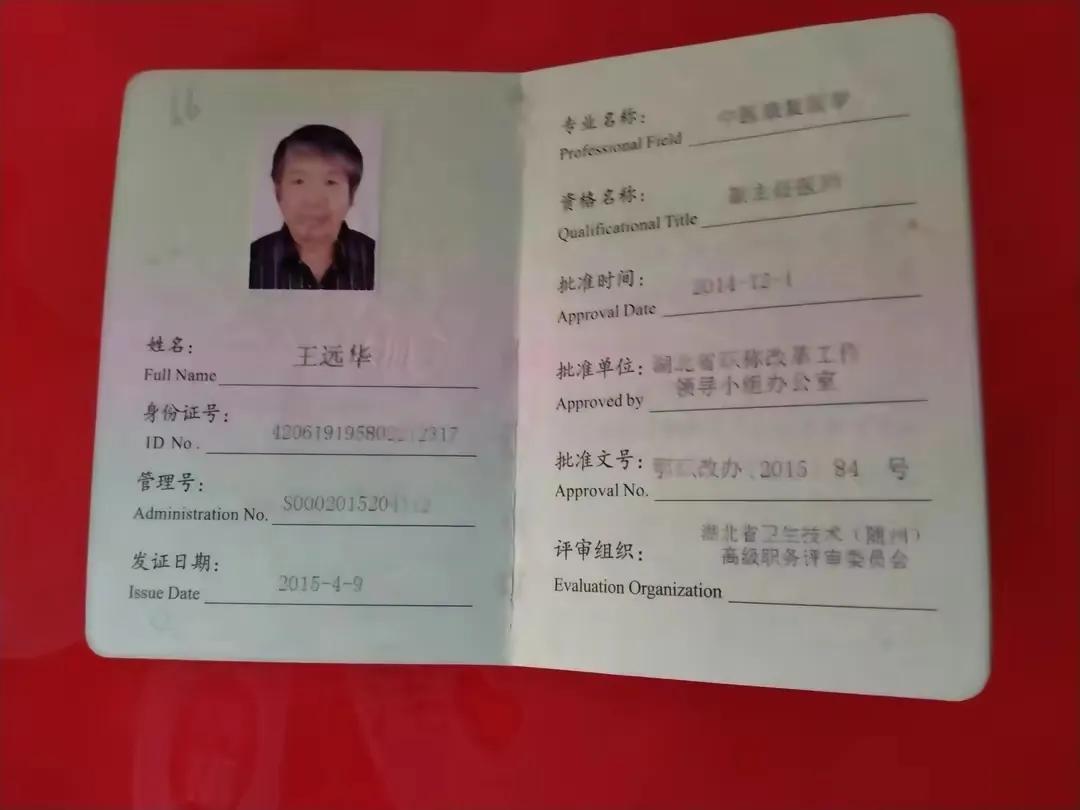 姓名：
王远华
Full Name
身份证号：
ID No.
管理号：
Administration No.
发证日期：
2015-4-9
Issue Date
专业名称：
中医康复医学
Professional Field
资格名称：
副主任医师
Qualificational Title
批准时间：
2014-12-1
Approval Date
批准单位：
湖北省职称改革工作
领导小组办公室
Approved by
批准文号：
鄂职改办 2015 84 号
Approval No.
评审组织：
湖北省卫生技术（随州）
高级职务评审委员会
Evaluation Organization